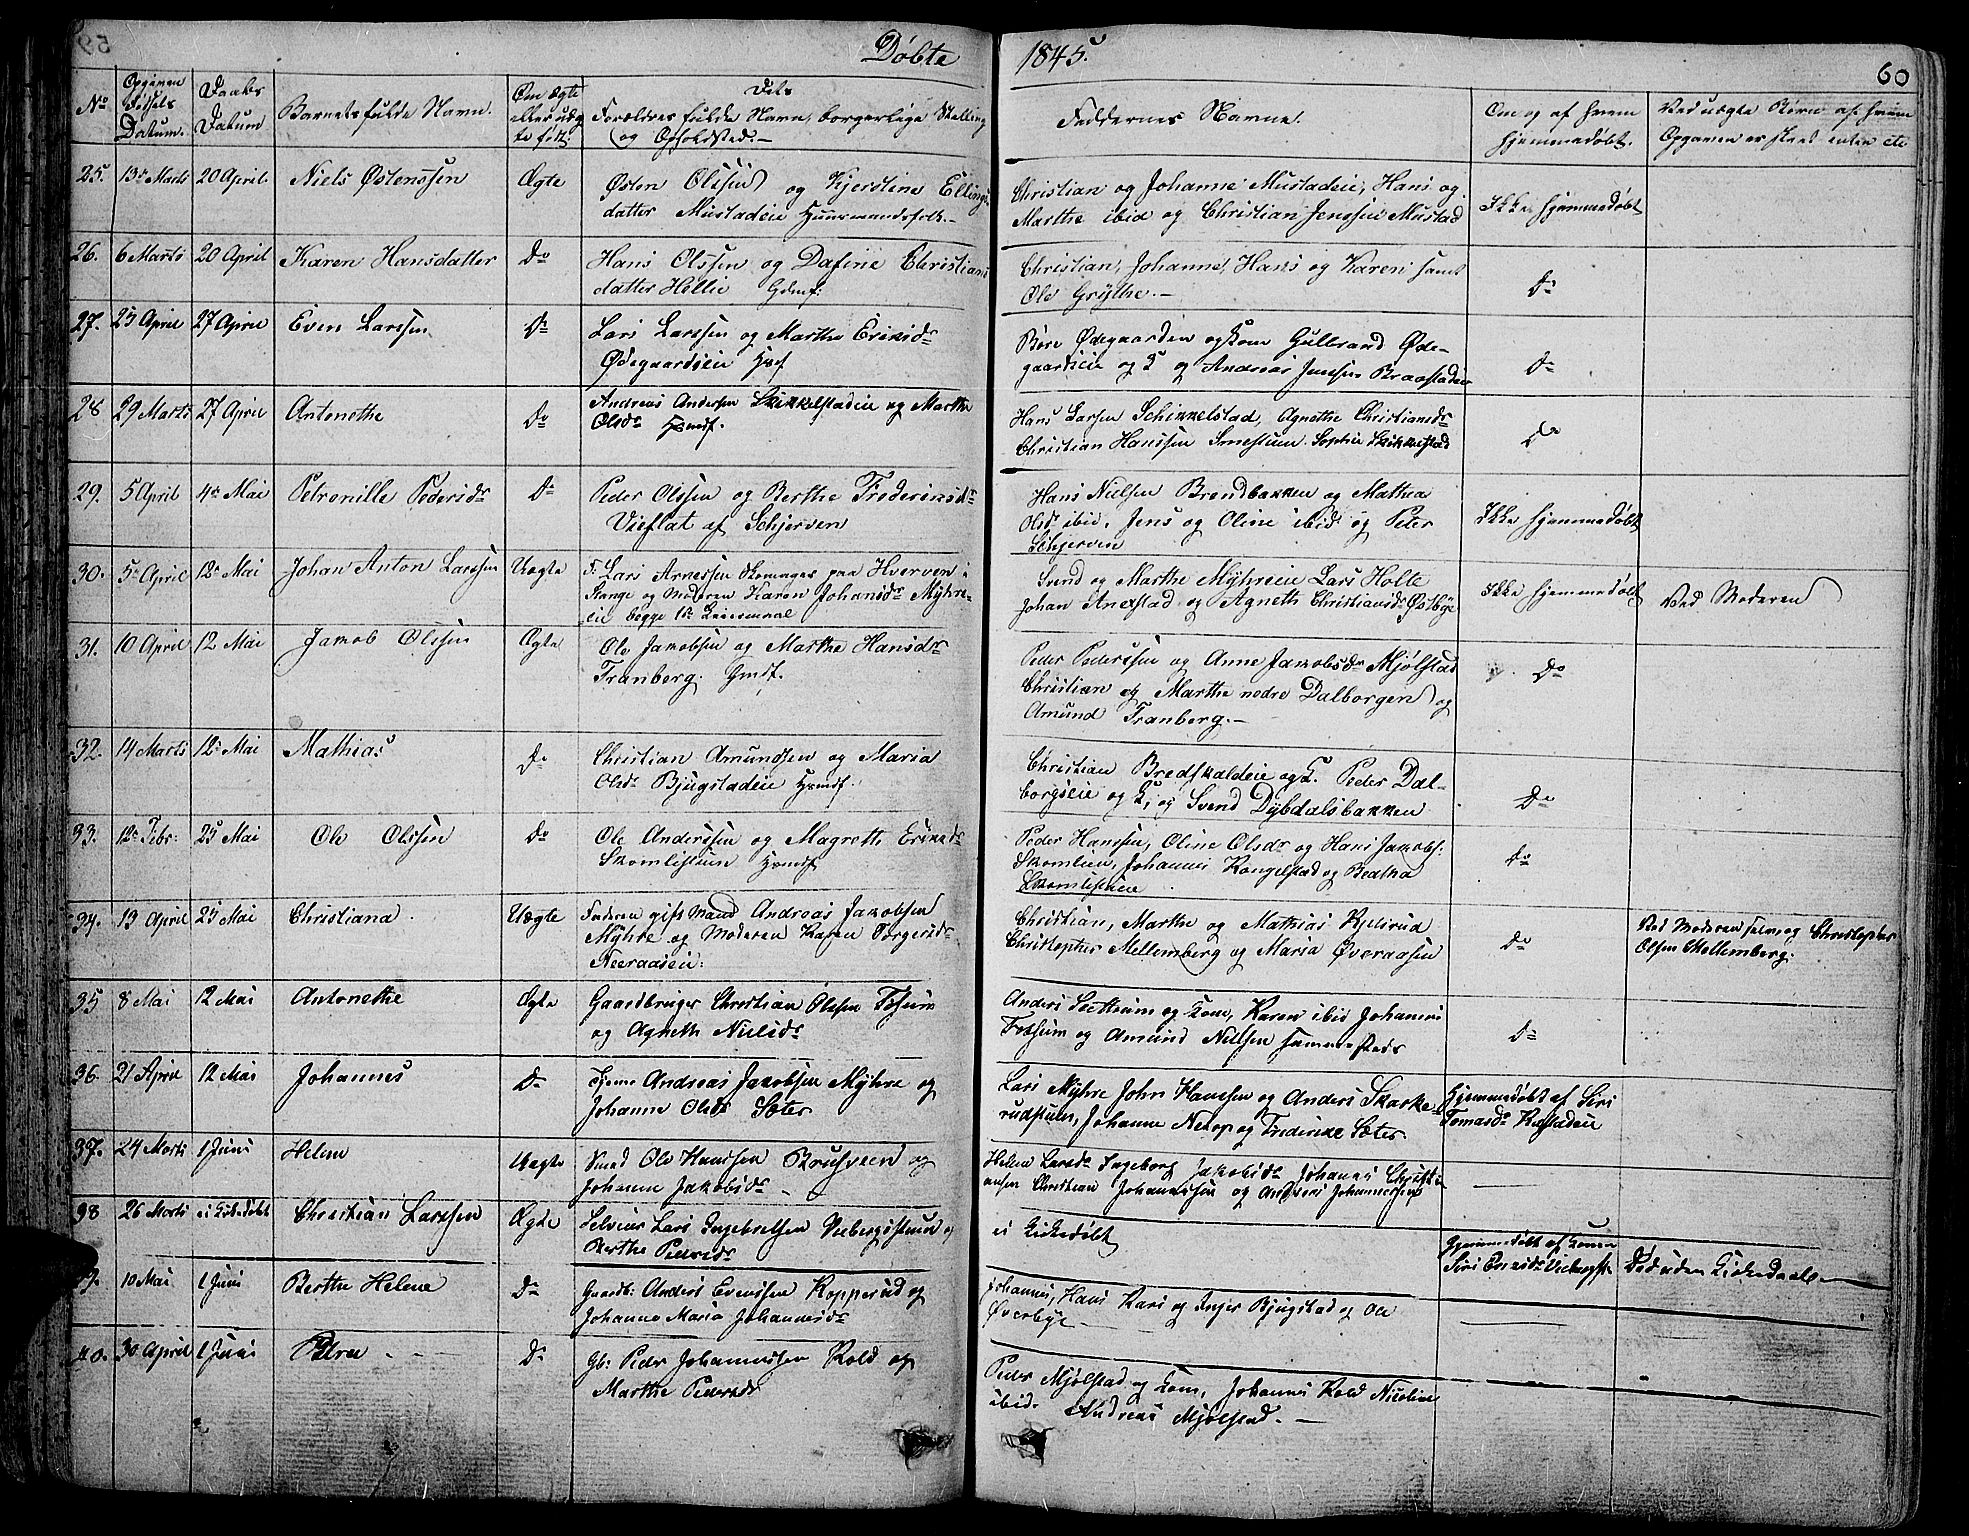 Døbte
1845.
60
No
Opgiven
Fødsels
Datum.
Daabs
Datum
Barnets fulde Navn.
Om ægte
eller uæg
te født
Dets
Forældres fulde Navn, borgerlige Stilling
og Opholdsted.
Faddernes Navne.
Om og af hvem
hjemmedøbt.
Ved uægte Børn af hvem
Opgaven er skeed enten etc
25. 13de Marts 20 April. Niels Østenssen Ægte
Østen Olssen og Kjerstine Ellings
datter Mustadeie Huusmandsfolk.-
Christian og Johanne Mustadeie, Hans og
Marthe ibid og Christian Jenssen Mustad
Ikke hjemmedøbt
26. 6 Marts 20 April Karen Hansdatter Do
Hans Olssen og Dafine Christians
datter Hellie Gdmf:
Christian, Johanne, Hans og Karen samt
Ole Grythe.-
Do
27. 23 April 27 April Even Larssen Do
Lars Larssen og Marthe Eriksdr
Ødegaardseie
Ødegaarden og Kone Gullrand Øde-
gaardseie og K og Andreas Jenssen Braastadeie
Do
28 29 Marts 27 April Antonethe Do
Andreas Andersen Skikkelstadeie og Marthe
Olsdr Hsmdf.
Hans Larsen Schikkelstad, Agnethe Christiansdr
Christian Hanssen Smestuen Sophie Skikkelstad
Do
29. 5 April 4de Mai Petronille Pedersdr Do
Peder Olssen og Berthe Frederiksdr
Vieflat af Schjerven
Hans Nielsen Brendbakken og Mathea
Olsdr ibid, Jens og Oline ibid og Peter
Schjerven
Ikke hjemmedøbt
30. 5te April 12te Mai Johan Anton Larssen Uægte
F: Lars Arnessen paa Hverven i
Stange og Moderen Karen Johansdr Myhre-
eie begge 1ste Leiermaal
Svend og Marthe Myhreeie Lars Holte
Johan Anexstad og Agneth Christiansdr Østbye
Ikke hjemmedøbt
Ved Moderen
31. 10 April 12 Mai Jakob Olssen Ægte
Ole Jakobsen og Marthe Hansdr
Tranberg. Gmdf.
Peder Pederssen og Anne Jakobsdr Mjølstad
Christian og Marthe nedre Dalborgen og
Amund Tranberg.-
Do
32. 14 Marts 12te Mai Mathias Do
Christian Amundsen og Maria
Olsdr Bjugstadeie Hsmdf.
Christian Bredskaldeie og K. Peder Dal-
borgseie og K, og Svend Dybdalsbakken
Do
33. 12te Febr: 25 Mai Ole Olssen Do
Ole Anderssen og Magrethe Eriksdr
Skomlistuen Hsmdf
Peder Hanssen, Oline Olsdr og Hans Jakobs:
Skomlien, Johannes Kongelstad og Beatha
Skomlistuen
do
34. 13 April 25 Mai Christiana. Uægte
Faderen gift Mand Andreas Jakobsen
Myhre og Moderen Karen Torgersdr
Neeraaseie:
Christian, Marthe og Mathias Kjelsrud
Christopher Mellemberg og Maria Øveraasen
do
Ved Moderen selv og Christopher
Olsen Mellemberg.
35 8 Mai 12 Mai Antonethe Ægte
Gaardbruger Christian Olssen Fossum
og Agneth Nielsdr
Anders Setthum og Kone, Karen ibid Johannes
Fossum og Amund Nielsen sammesteds
Do
36. 21 April 12 Mai Johannes Do
Andreas Jakobsen Myhre og
Johanne Olsdr Sæter
Lars Myhre John Hanssen og Anders Skarke-
rudstuen, Johanne Netop og Frederike Sæter.
Hjemmedøbt af Siri
Tomasdr
37. 24 Marts 1 Juni Helene Uægte
Smed Ole Hanssen Brusveen og
Johanne Jakobsdr
Helene Larsdr Ingeborg Jakobsdr Johannes Christi
ansen Christian Johannessen og Anders Johannessen
38 26 Marts ei Kirkedøbt Christian Larssen Ægte
Selveier Lars Ingebretsen Viebergstuen og
Berthe Pedersdr
ei Kirkedøbt
Hjemmedøbt af Konen
Siri Ericsdr
Død uden Kirkedaab.
39. 10 Mai 1 Juni Berthe Helene Do
Gaardb: Anders Evenssen Kopperud og
Johanne Maria Johannesdr
Johannes, Hans Kari og Inger Bjugstad og Ole
Øverbye
40. 30 April 1 Juni Petrea Do
Gb: Peder Johannessen Kold og
Marthe Pedersdr
Peder Mjølstad og Kone, Johannes Kold Nicoline
ibid. Andreas Mjølstad.-